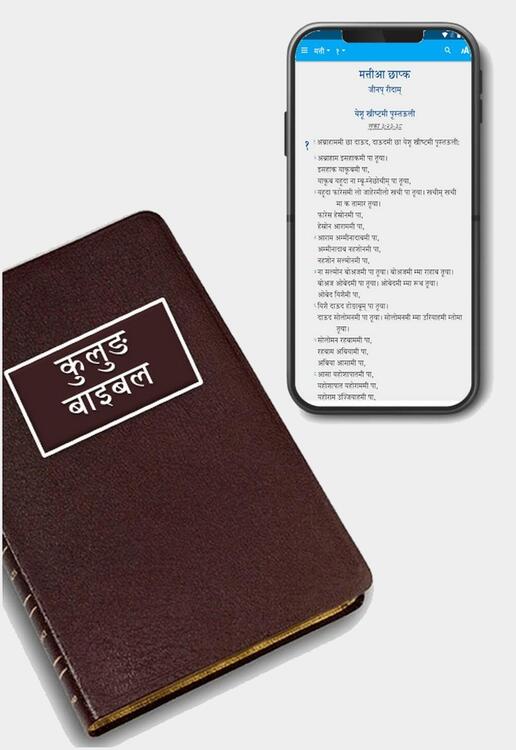 मत्ती १
मत्तीआ छाप्क
जीनप् रीदाम्
येशू ख्रीष्टमी पुस्तऊली
लूका ३:२३-३८
१ अब्राहाममी छा दाऊद, दाऊदमी छा येशू ख्रीष्टमी पुस्तऊली:
अब्राहाम इसहाकमी पा तूया।
इसहाक याकूबमी पा,
याकूब यहूदा ना म्बू-म्नेछोचीम् पा तूया,
यहूदा फारेसमी लो जाहेरमीलो खची पा तूया। खचीम् खची
मा क तामार तूया।
फारेस हेस्रोनमी पा,
हेस्रोन आराममी पा,
आराम अम्मीनादाबमी पा,
अम्मीनादाब नहशोनमी पा,
नहशोन सल्मोनमी पा,
ना सल्मोन बोअजमी पा तूया। बोअजमी म्मा राहाब तूया।
बोअज ओबेदमी पा तूया। ओबेदमी म्मा रूथ तूया।
ओबेद यिशैमी पा,
यिशै दाऊद होङाबूम् पा तूया।
दाऊद सोलोमनमी पा तूया। सोलोमनमी म्मा उरियाहमी म्तोमा
तूया।
सोलोमन रहबाममी पा,
रहबाम अबियामी पा,
अबिया आसामी पा,
आसा यहोशापातमी पा,
यहोशापात यहोराममी पा,
यहोराम उज्जियाहमी पा,
कुलुङ
बाइबल